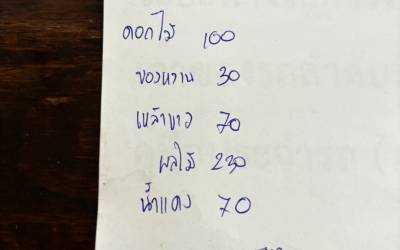 ดอกไม้ 100
ของหวาน 30
เหล้าขาว 70
ผลไม้ 230
น้ำแดง 70